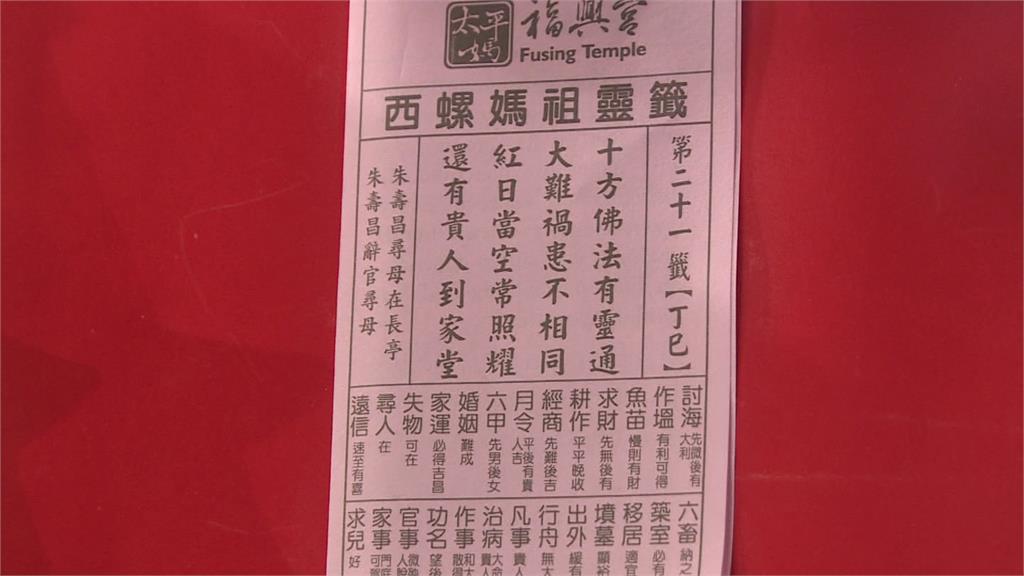 太平媽
福興宮
Fusing Temple
西螺媽祖靈籤
第二十一籤【丁巳】
十方佛法有靈通
大難禍患不相同
紅日當空常照耀
還有貴人到家堂
朱壽昌尋母在長亭
朱壽昌辭官尋母
討海 先微後有大利
作塭 有利可得
魚苗 慢則有財
求財 先無後有
耕作 平平晚收
經商 先難後吉
月令 平後有貴人吉
六甲 先男後女
婚姻 難成
家運 必得吉昌
失物 可在
尋人 在
遠信 速至有喜
六畜 納之
築室 必有
移居 適宜
墳墓 顯裕
出外 緩有
行舟 無大
凡事 貴人
治病 大命貴人
作事 和大散得
功名 望後
官事 微
家事 門庭可賀
求兒 好